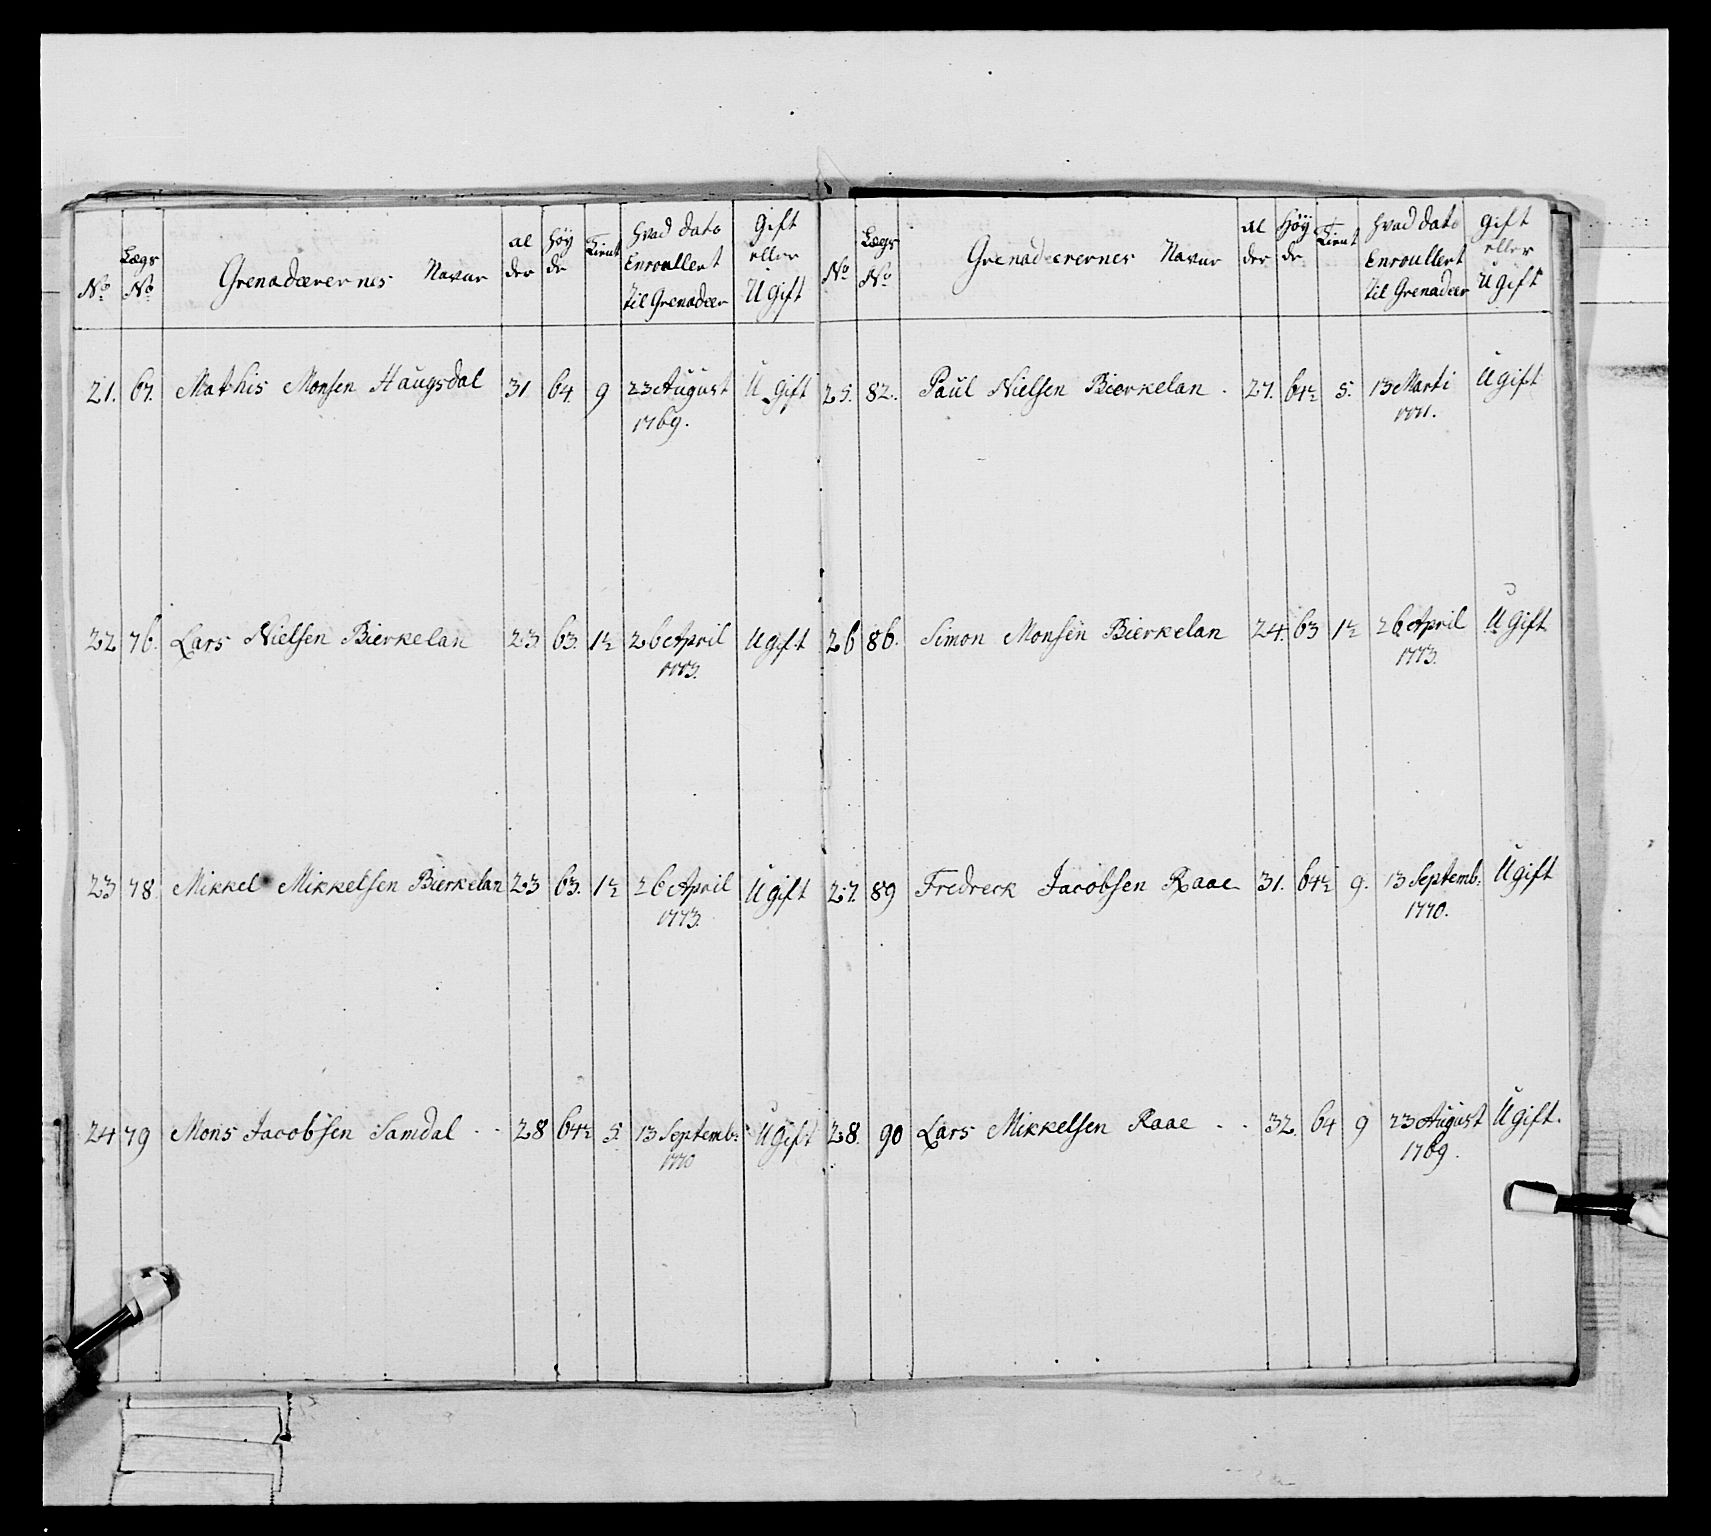 No Lægs No Grenadærernes Navne Al der Høy de Tient Hvad Dato Enroullert til Grenadeer Gift eller Ugift
21. 67. Mathis Monsen Haugsdal 31 64. 9 23 August 1769. Ugift
22 76. Lars Nielsen Bierkelan 23. 63. 1½ 26 April 1773. Ugift
23 78. Mikkel Mikkelsen Bierkelan 23 63. 1½ 26 April 1773. Ugift
24 79 Mons Jacobsen Samdal - - 28 64½ 5. 13 Septemb: 1770 Ugift
No Lægs No Grenadeerernes Navne Al der Høy de Tient Hvad Dato Enroullert til Grenadeer Gift eller Ugift
25. 82. Paul Nielsen Bierkelan . 27. 64½ 5. 13 Marti 1771. Ugift
26 86. Simon Monsen Bierkelan 24. 63 1½ 26 April 1773. Ugift
27. 89 Fredreck Jacobsen Raae 31. 64½ 9. 13 Septemb: 1770. Ugift
28. 90 Lars Mikkelsen Raae - - 32. 64 9 23 August 1769. Ugift.